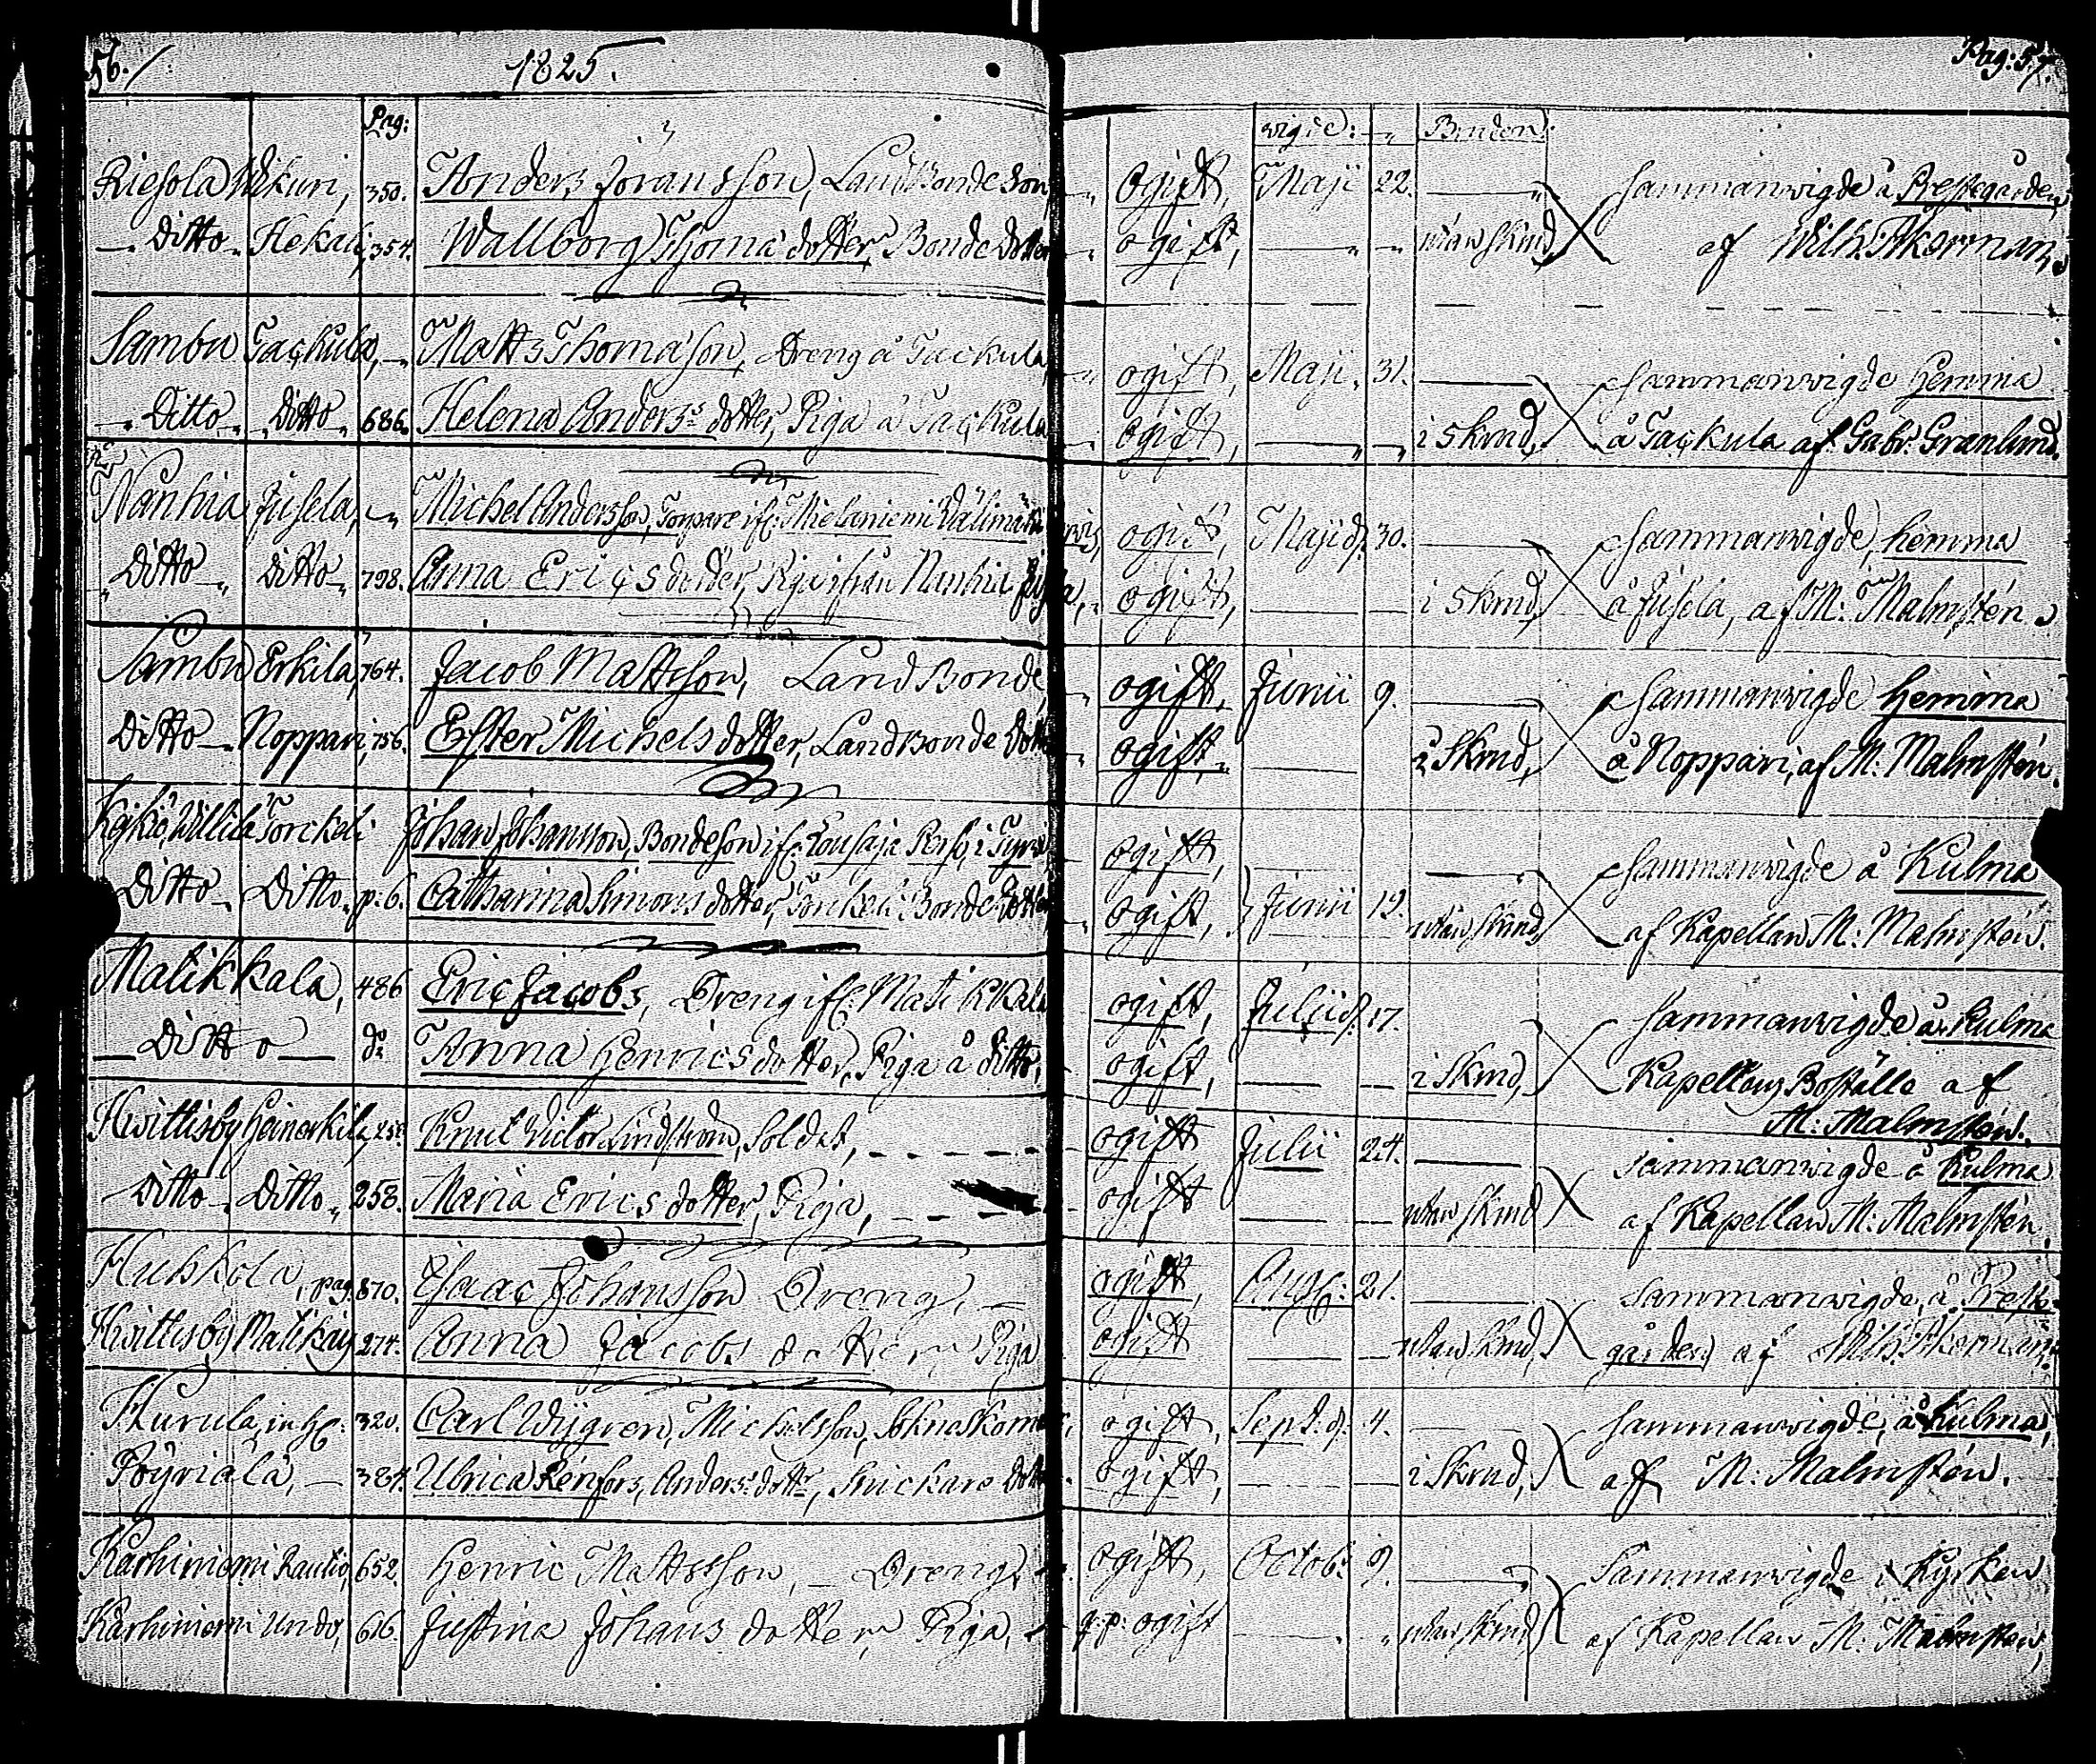 56./ 1825. Pag: 57.
Pag: vigde: Bruden:
Riesola Wikuri, 350. Anders Jöransson, LandBonde son, ogift, Maji 22. — sammanvigde å Prestegården
Ditto Hekali, 354. Wallborg Thoma dotter, Bonde dotter ogift, — utan skrud, af Wilh. Åkerman.
Sambu Taçkula, Matts Thomason, Dreng å Taçkula, ogift, Maji, 31. — sammanvigde hemma
Ditto Ditto 686. Helena Anders dotter, Piga å Taçkula ogift, — i skrud, å Taçkula af Gabr. Grænlund.
Nanhia Jusela, Michel Andersson, Torpare ifr. ogift, Maji d. 30. — sammanvigde, hemma
Ditto Ditto 798. Anna Eriçs dotter, Piga ifrån Nanhia Jusela, ogift, — i skrud, å Jusela, af M: Malmstén
Sambu Erkila, 764. Jacob Mattsson, Land Bonde, ogift, Junii 9. — sammanvigde hemma
Ditto Noppari, 756. Ester Michels dotter, Landbonde Dotter ogift, — i skrud, å Noppari, af M: Malmstén.
Keikiö, Willilä Torckeli Johan Johansson, Bondeson ifr. i ogift, — sammanvigde å Kulma
Ditto Ditto p: 6. Catharina Simons dotter, Torkeli Bonde Dotter ogift, Junii 19. utan skrud, af Kapellan M: Malmstén.
Matikkala, 486 Eriç Jacobs, Dreng ifr. Matikkala ogift, Julii d. 17. sammanvigde å Kulma
Ditto do Anna Henrics dotter, Piga å ditto, ogift, — i skrud, Kapellans Boställe af
M: Malmstén.
Hvittisby Heinerkilä, 258. Knut Victor Lindström, Soldat, ogift Julii 24. — sammanvigde å Kulma
Ditto Ditto 258. Maria Erics dotter, Piga, ogift — utan skrud af Kapellan M: Malmstén.
Huhkola, pag. 870. Isaac Johansson Dreng, — ogift, Aug: 21. — sammanvigde, å Preste-
Hvittisby Matikay 274. Anna Jacobs dotter Piga ogift — utan skrud, gården af Wilh. Åkerman.
Hurula, 320. Carl Wijgren, Michelsson, Sokneskomak. ogift, Sept: d. 4. — sammanvigde, å Kulma,
Pöyriälä, — 384. Ulrica Renfors, Anders dottr, Snickare Dotter ogift, — i skrud, af M: Malmstén.
Karhiniemi Rautio, 652. Henric Mattsson, — Dreng, ogift, Octob: 9. — Sammanvigde i Kyrkan
Karhiniemi Undo, 616. Justina Johans dotter Piga, q. p: ogift — utan skrud af Kapellan M: Malmstén,